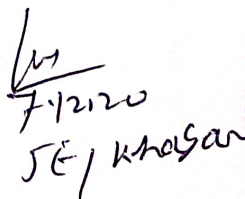 7.12.20
JE, Khasan